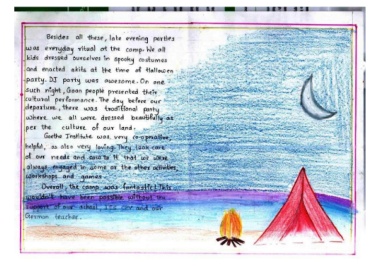 Besides all these, late evening parties
was everyday ritual at the camp. We all
kids dressed ourselves in spooky costumes
and enacted skits at the time of Hallowen
party. DJ party was awesome. On one
such night, Goan people presented their
cultural performance. The day before our
departure, there was traditional party
where we all were dressed beautifully as
per the culture of our land.
Goethe Institute was very co-operative,
helpful, as also very loving. They took care
of our needs and saw to it that we were
always engaged in some or the other activities,
workshops and games.
Overall, the camp was fantastic! This
wouldn't have been possible without the
support of our school, and our
German teacher.